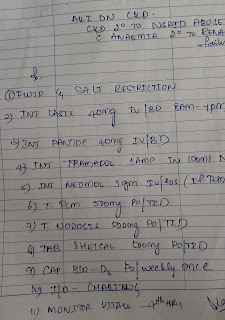 AKI ON CKD.
CKD 2° TO NSAID ABUSE
C ANAEMIA 2° TO RENA
failu
① FLUID & SALT RESTRICTION
2) INJ LASIX 40mg IV/BD 8AM-4pm
3) INJ PANTOP 40mg IV/BD
4) INJ TRAMADOL 1AMP IN 100ml N
5) INJ NEOMOL 1gm IV/SOS (IF TEM
6) T. PCM 500mg PO/TID
7) T. NODOSIS 500mg PO/TID
8) TAB SHELCAL 500mg PO/TID
9) CAP BIO-D3 PO/weekly once
10) I/O - CHARTING
11) MONITOR VITALS - 4th HRLY